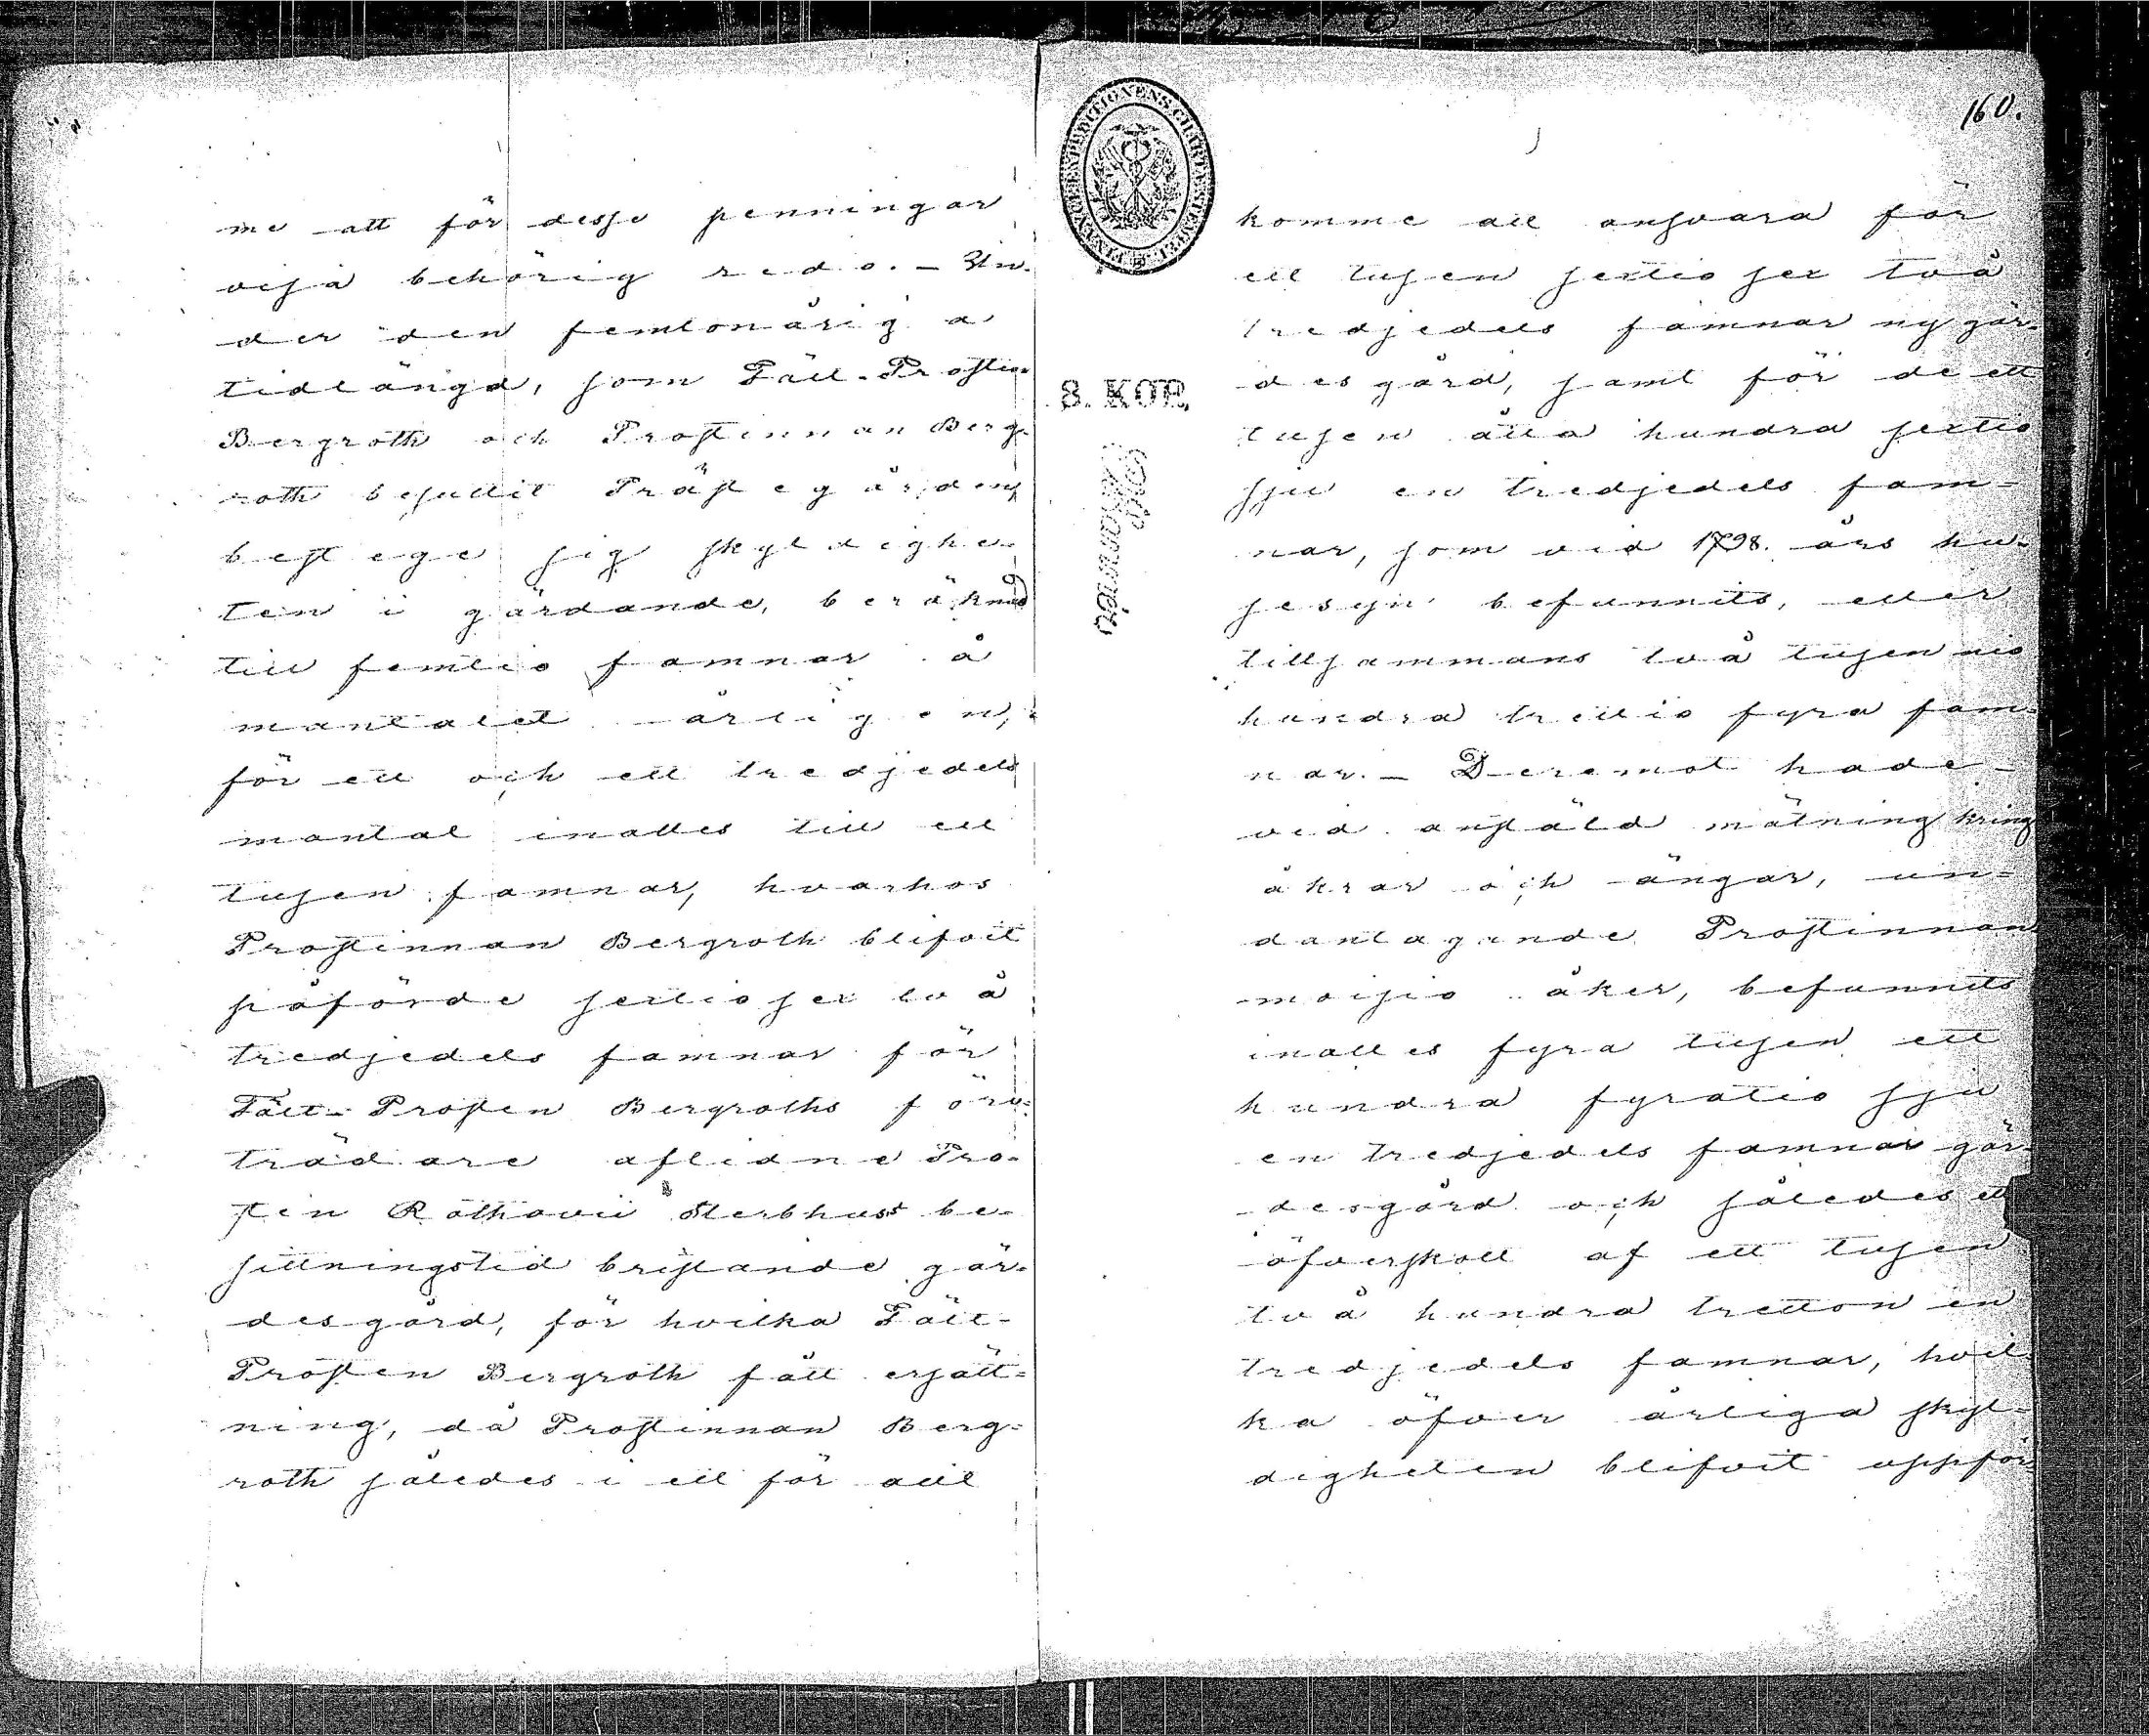 me att för desse penningar
visa behörig redo. - Un-
der den femtonåriga
tidlängd, som Fält-Prosten
Bergroth och Prostinnan Berg-
roth besuttit Prästegården,
bestege sig skyldighe-
ten i gärdande, beräknad
till femtio famnar å
mantalet årligen,
för ett och ett tredjedels
mantal inalles till ett
tusen famnar, hvarhos
Prostinnan Bergroth blifvit
påförde sextiosex två
tredjedels famnar för
Fält-Prosten Bergroths före-
trädare aflidne Pro-
sten Rothovii Sterbhuss be-
sittningstid bristande gär-
desgård, för hvilka Fält-
Prosten Bergroth fått ersätt-
ning, då Prostinnan Berg-
roth således i ett för allt
160.
FINANCE EXPEDITIONENS CHARTÆ STEMPEL
8. KOP.
komme att ansvara för
ett tusen sextiosex två
tredjedels famnar ny gär-
desgård, samt för de ett
tusen åtta hundra sextio
sju en tredjedels fam-
nar, som vid 1798. års hu-
sesyn befunnits, eller
tillsammans två tusen nio
hundra trettio fyra fam-
nar. - Deremot hade
vid anstäld mätning kring
åkrar och ängar, un-
dantagande Prostinnan
moisio åker, befunnits
inalles fyra tusen ett
hundra fyratio sju
en tredjedels famnar gär-
desgård och således ett
öfverskott af ett tusen
två hundra tretton en
tredjedels famnar, hvil-
ka öfver årliga skyl-
digheten blifvit uppför-